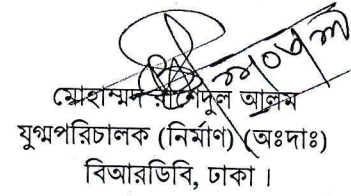 মোহাম্মদ রাশেদুল আলম
যুগ্মপরিচালক (নির্মাণ) (অঃদাঃ)
বিআরডিবি, ঢাকা ।